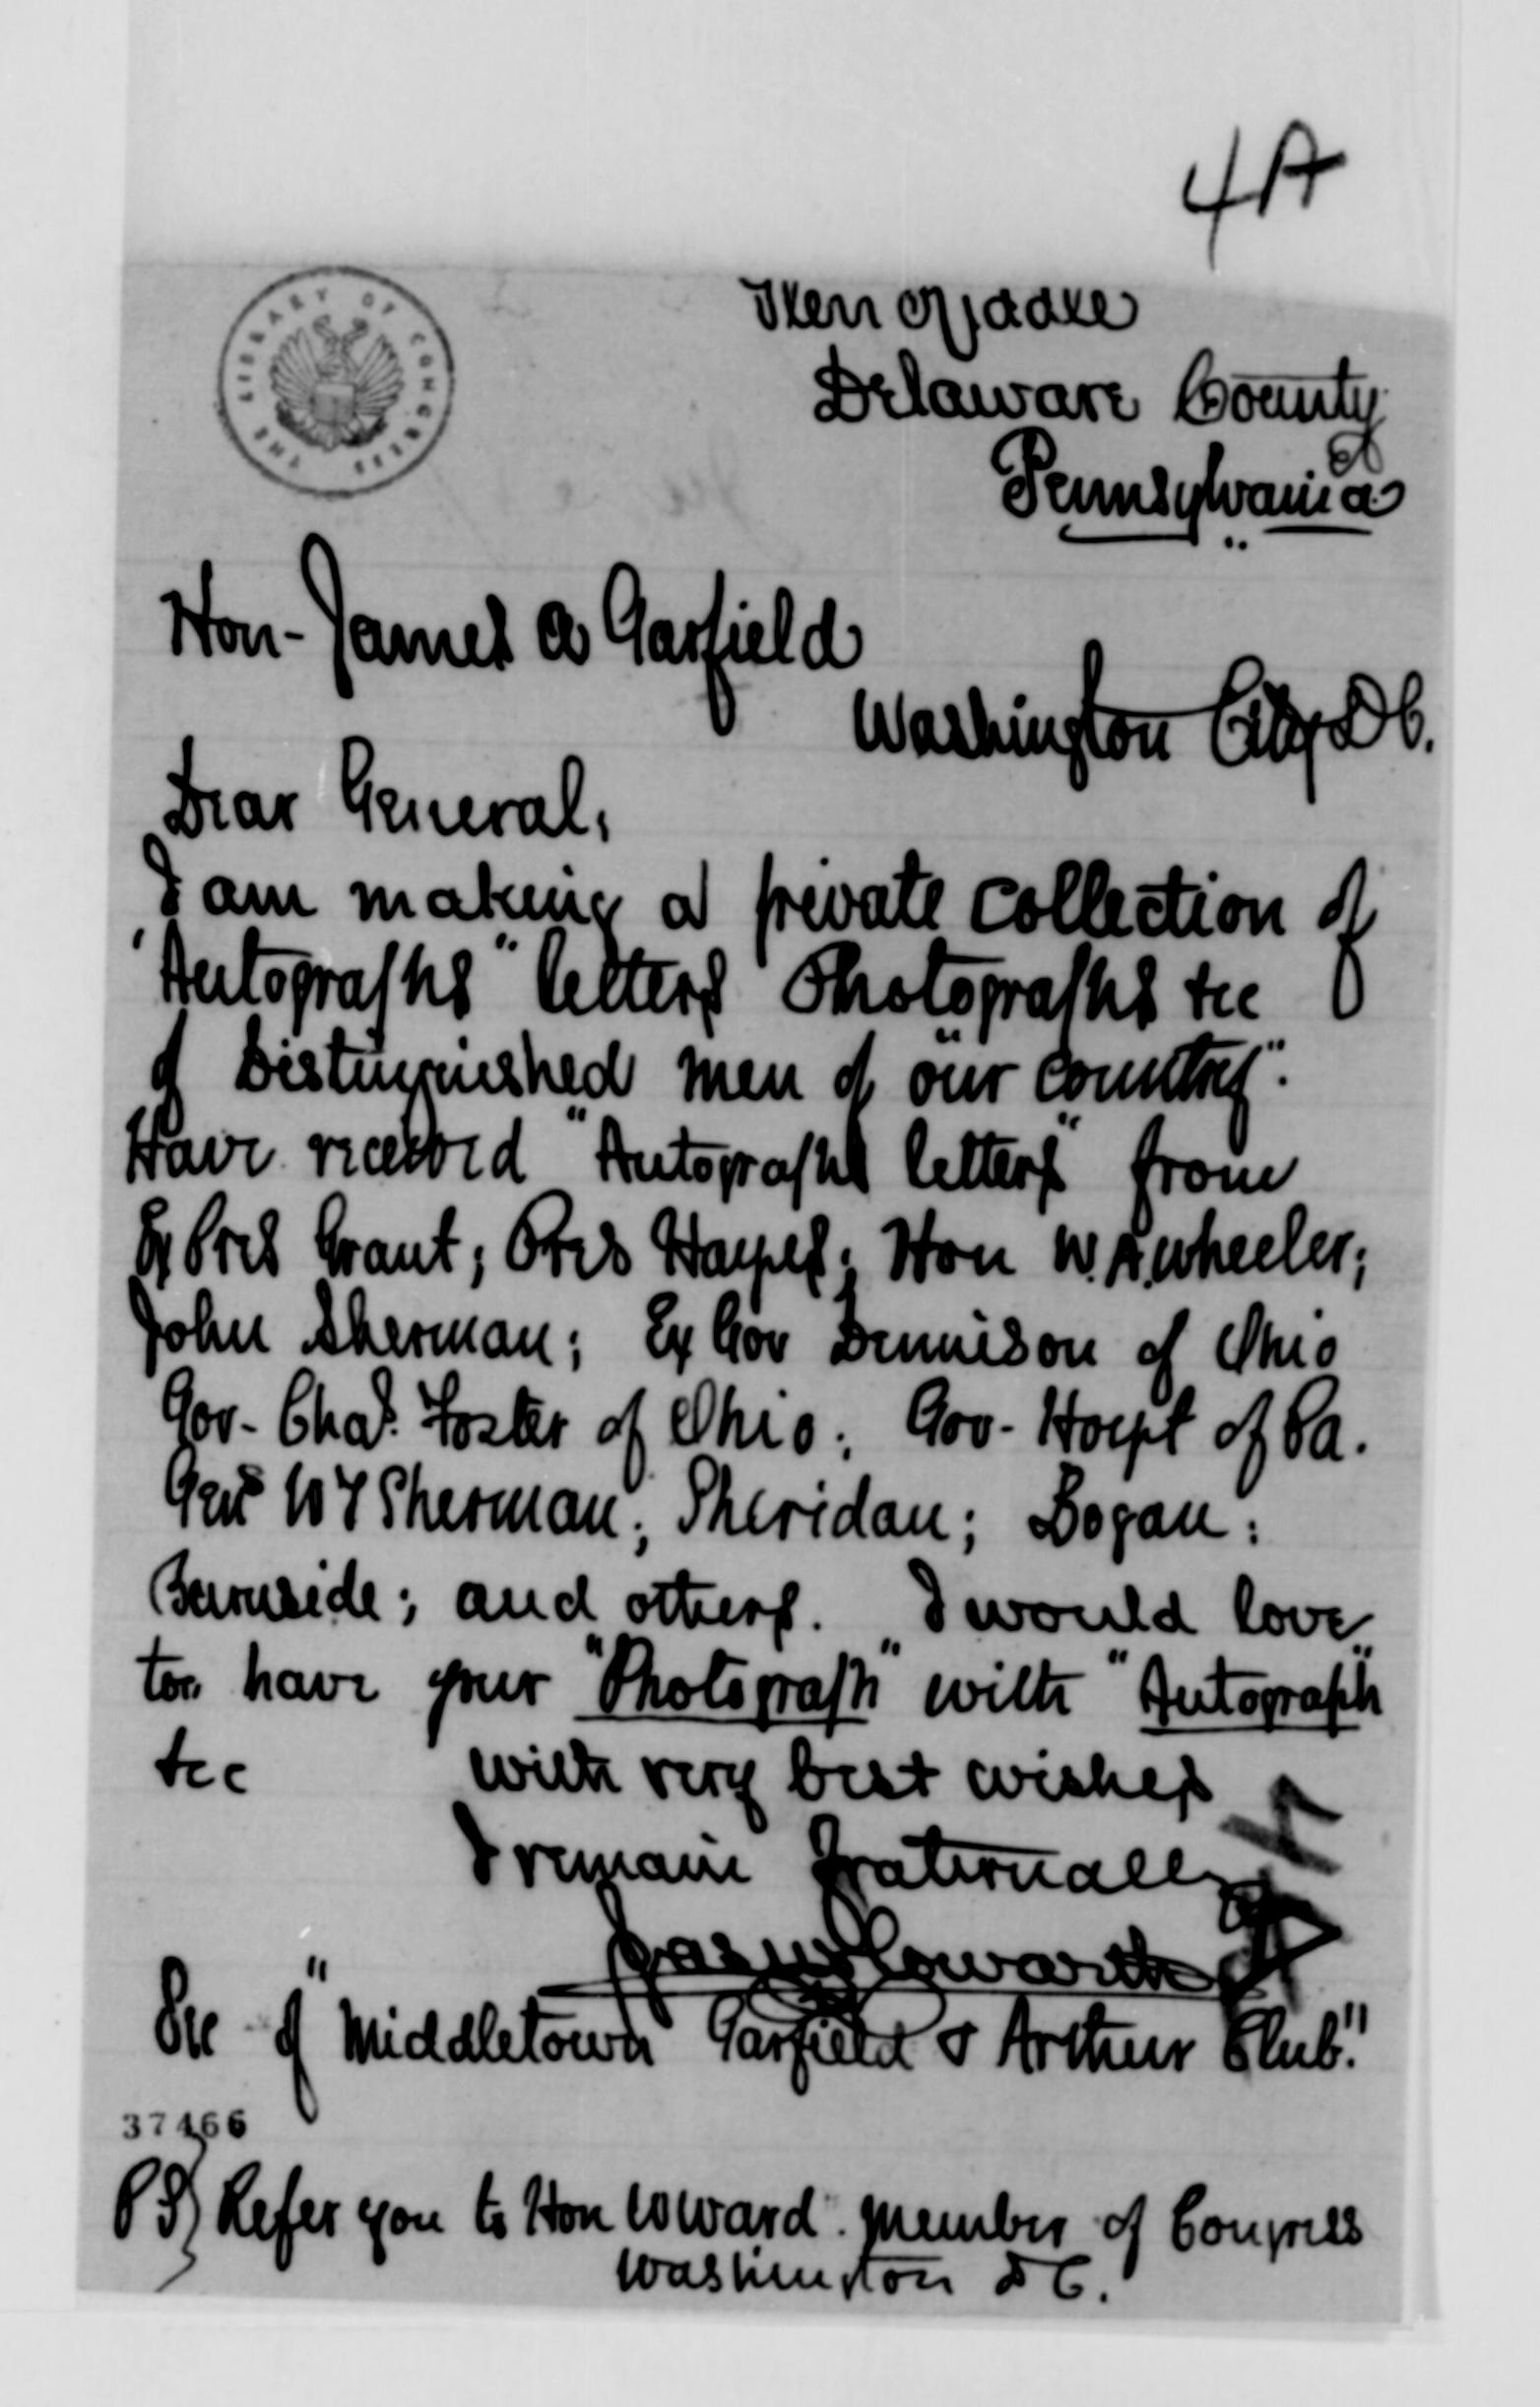 4A
THE LIBRARY OF CONGRESS
Glen Riddle
Delaware County
Pennsylvania
Hon- James A Garfield
Washington City D C.
Dear General,
I am making a private collection of
"Autographs" letters Photographs &c
of Distinguished men of "our country".
Have received "Autograph letters" from
Ex Pres Grant; Pres Hayes; Hon W. A. Wheeler;
John Sherman; Ex Gov Dennison of Ohio
Gov- Chas. Foster of Ohio; Gov- Hoyt of Pa.
Genl W T Sherman; Sheridan; Logan;
Burnside; and others. I would love
to have your "Photograph" with "Autograph"
&c with very best wishes
I remain Fraternally
Howarth
Sec of "Middletown Garfield & Arthur Club."
37466
PS) Refer you to Hon W Ward. Member of Congress
Washington D C.